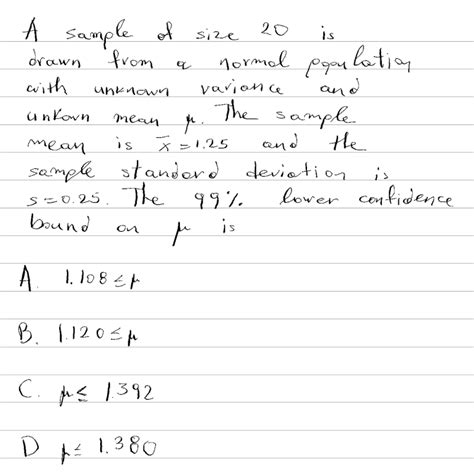 A sample of size 20 is
drawn from a normal population
with unknown variance and
unkown mean μ. The sample
mean is x̄ = 1.25 and the
sample standard deviation is
s = 0.25. The 99% lower confidence
bound on μ is
A. 1.108 ≤ μ
B. 1.120 ≤ μ
C. μ ≤ 1.392
D μ ≤ 1.380